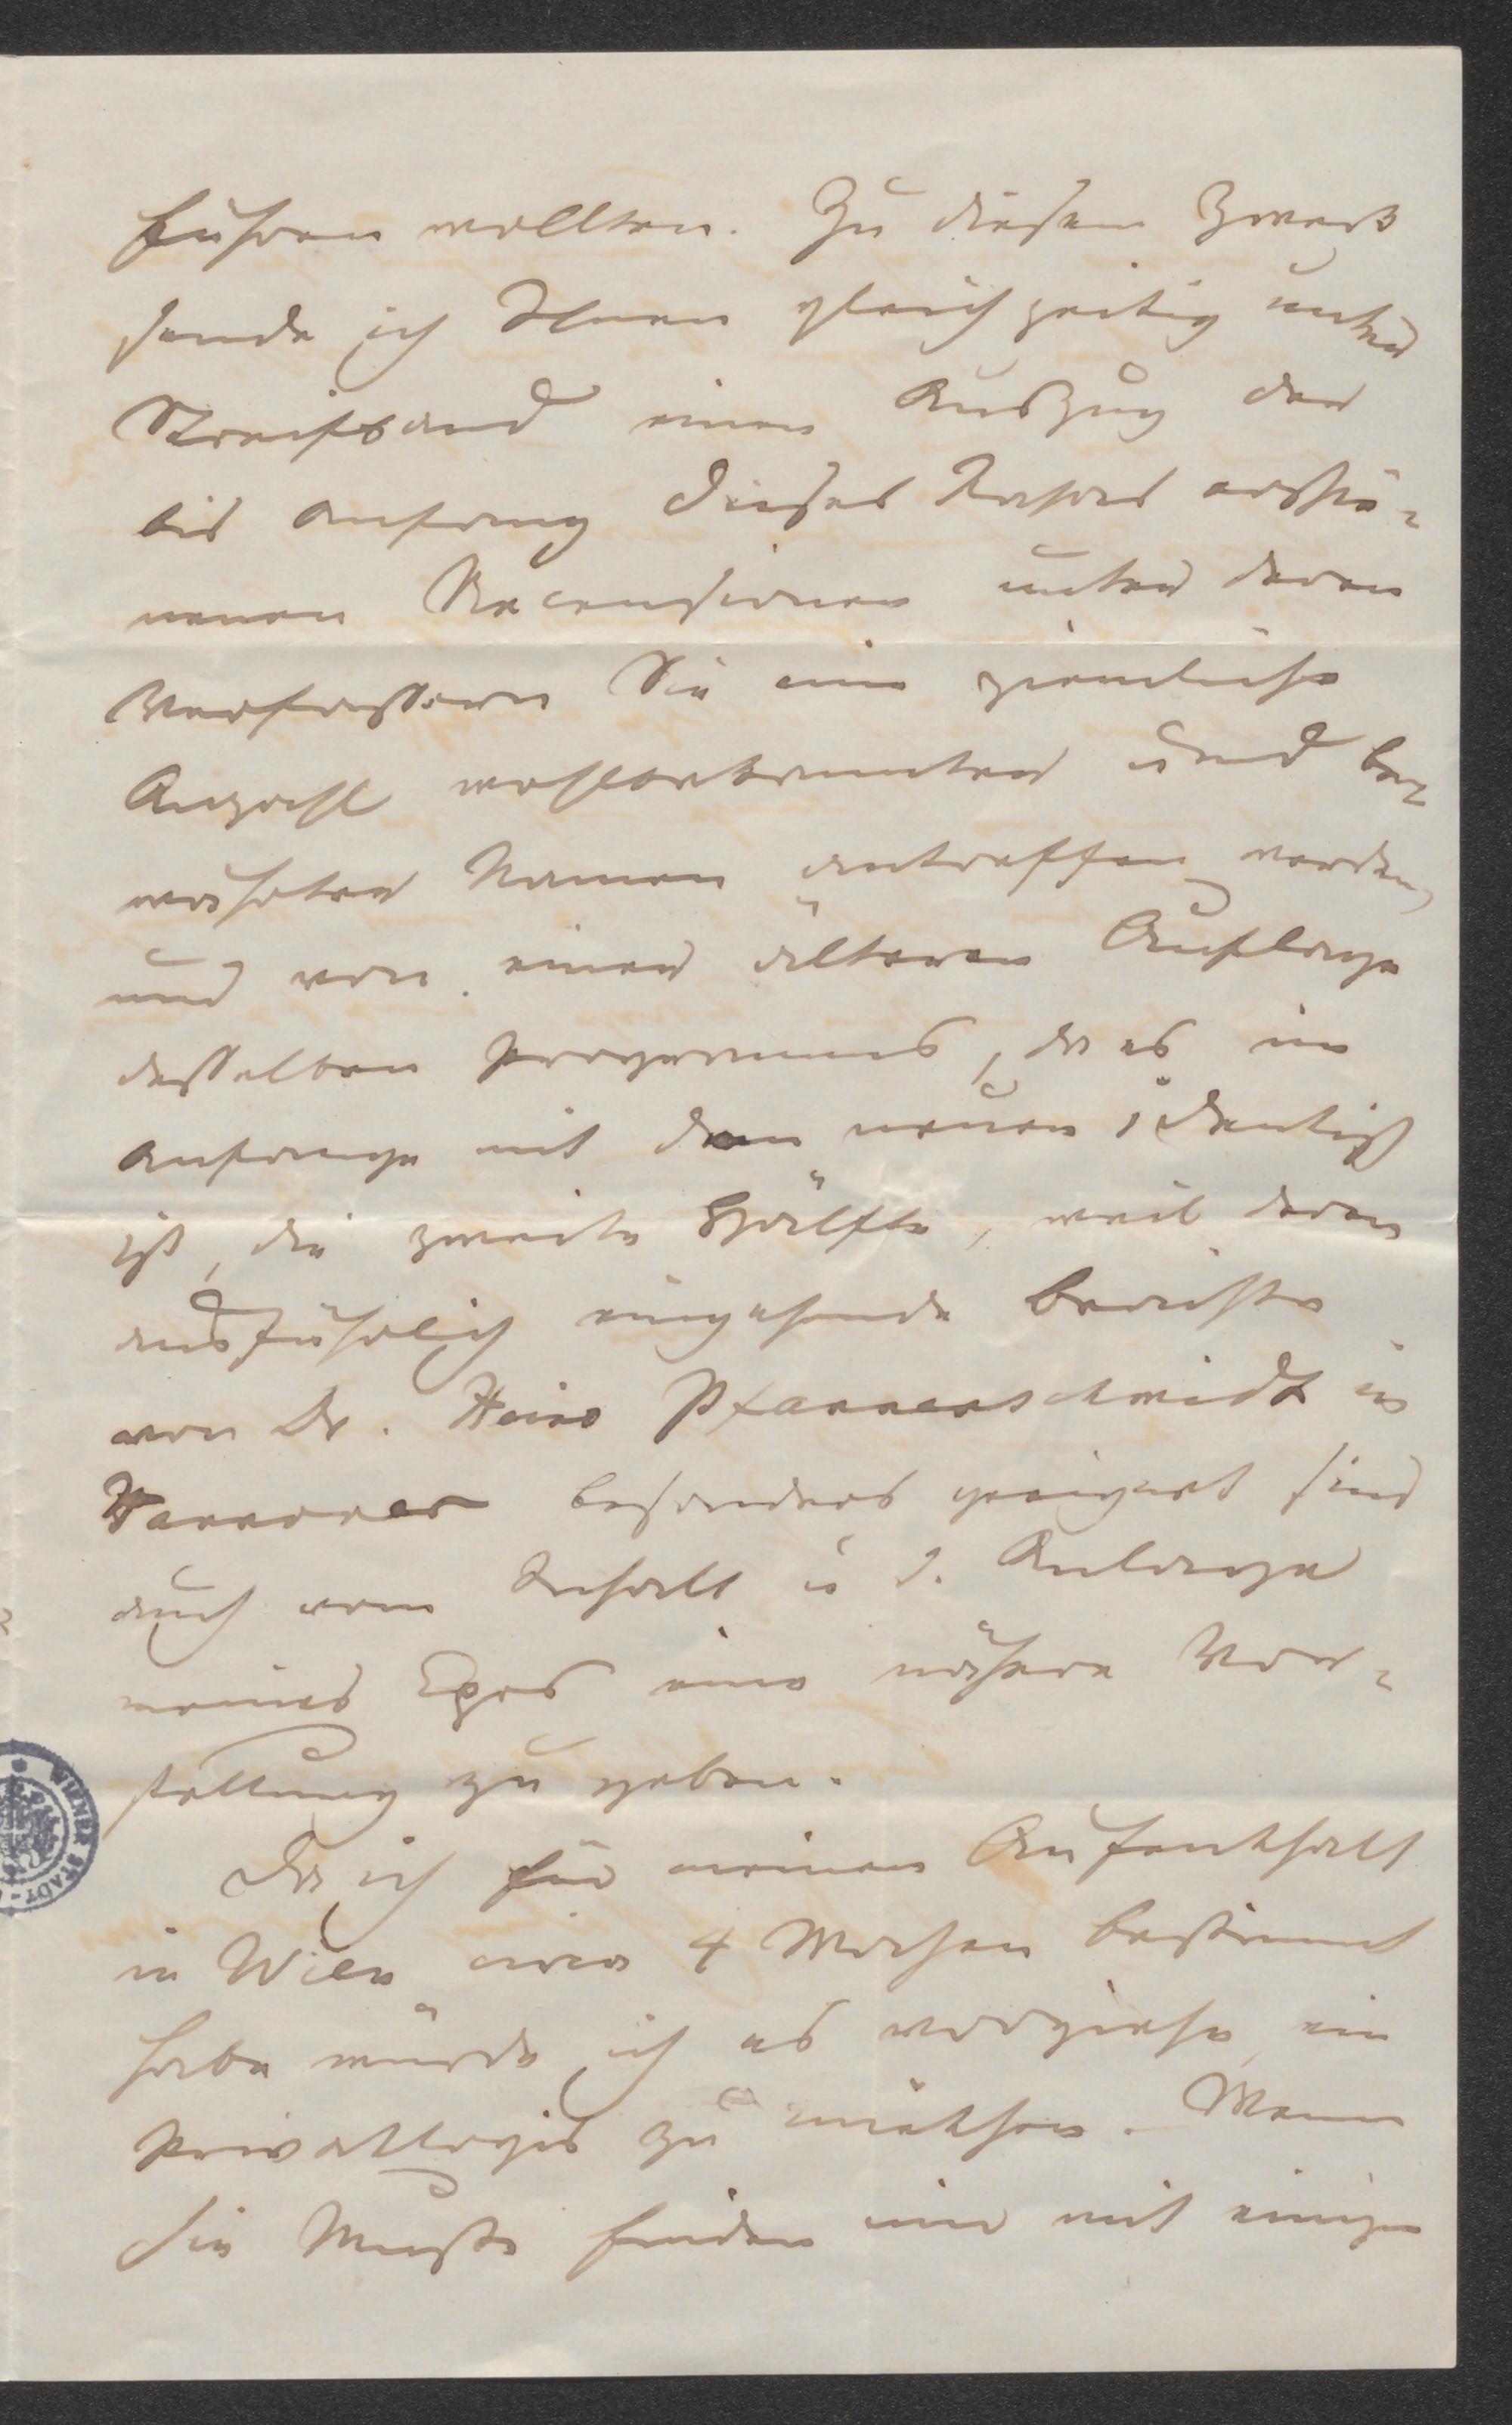 führen wollten. Zu diesem Zweck
sende ich Ihnen gleichzeitig unter
Streifband einen Auszug der
bis Anfang dieses Jahres erschie-
nenen Recensionen unter deren
Verfassern Sie eine ziemliche
Anzahl wohlbekannter und be-
währter Namen antreffen werden,
und von einer älteren Auflage
desselben Programms, da es im
Anfange mit dem neuen identisch
ist, die zweite Hälfte, weil deren
ausführlich eingehende Berichte
von Dr. Heino Pfannenschmidt in
Hannover besonders geeignet sind
auch vom Inhalt u d. Anlage
meines Epos eine nähere Vor-
stellung zu geben.
Da ich für meinen Aufenthalt
in Wien circa 4 Wochen bestimmt
habe würde ich es vorziehe ein
Privatlogis zu miethen. Wenn
Sie Muße finden mir mit einige
WIENER STADT-